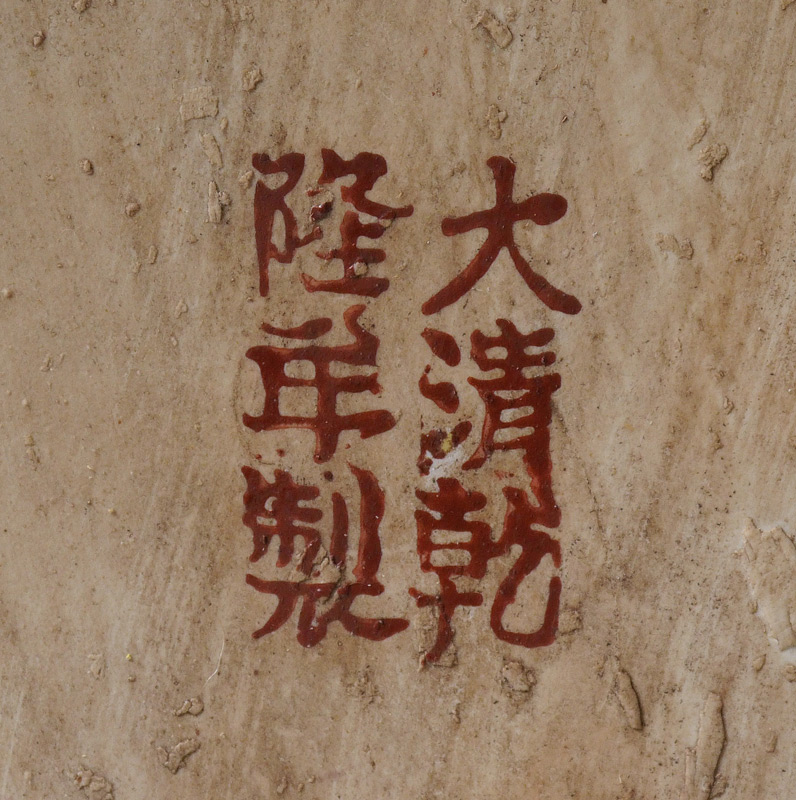 大清乾
隆年製